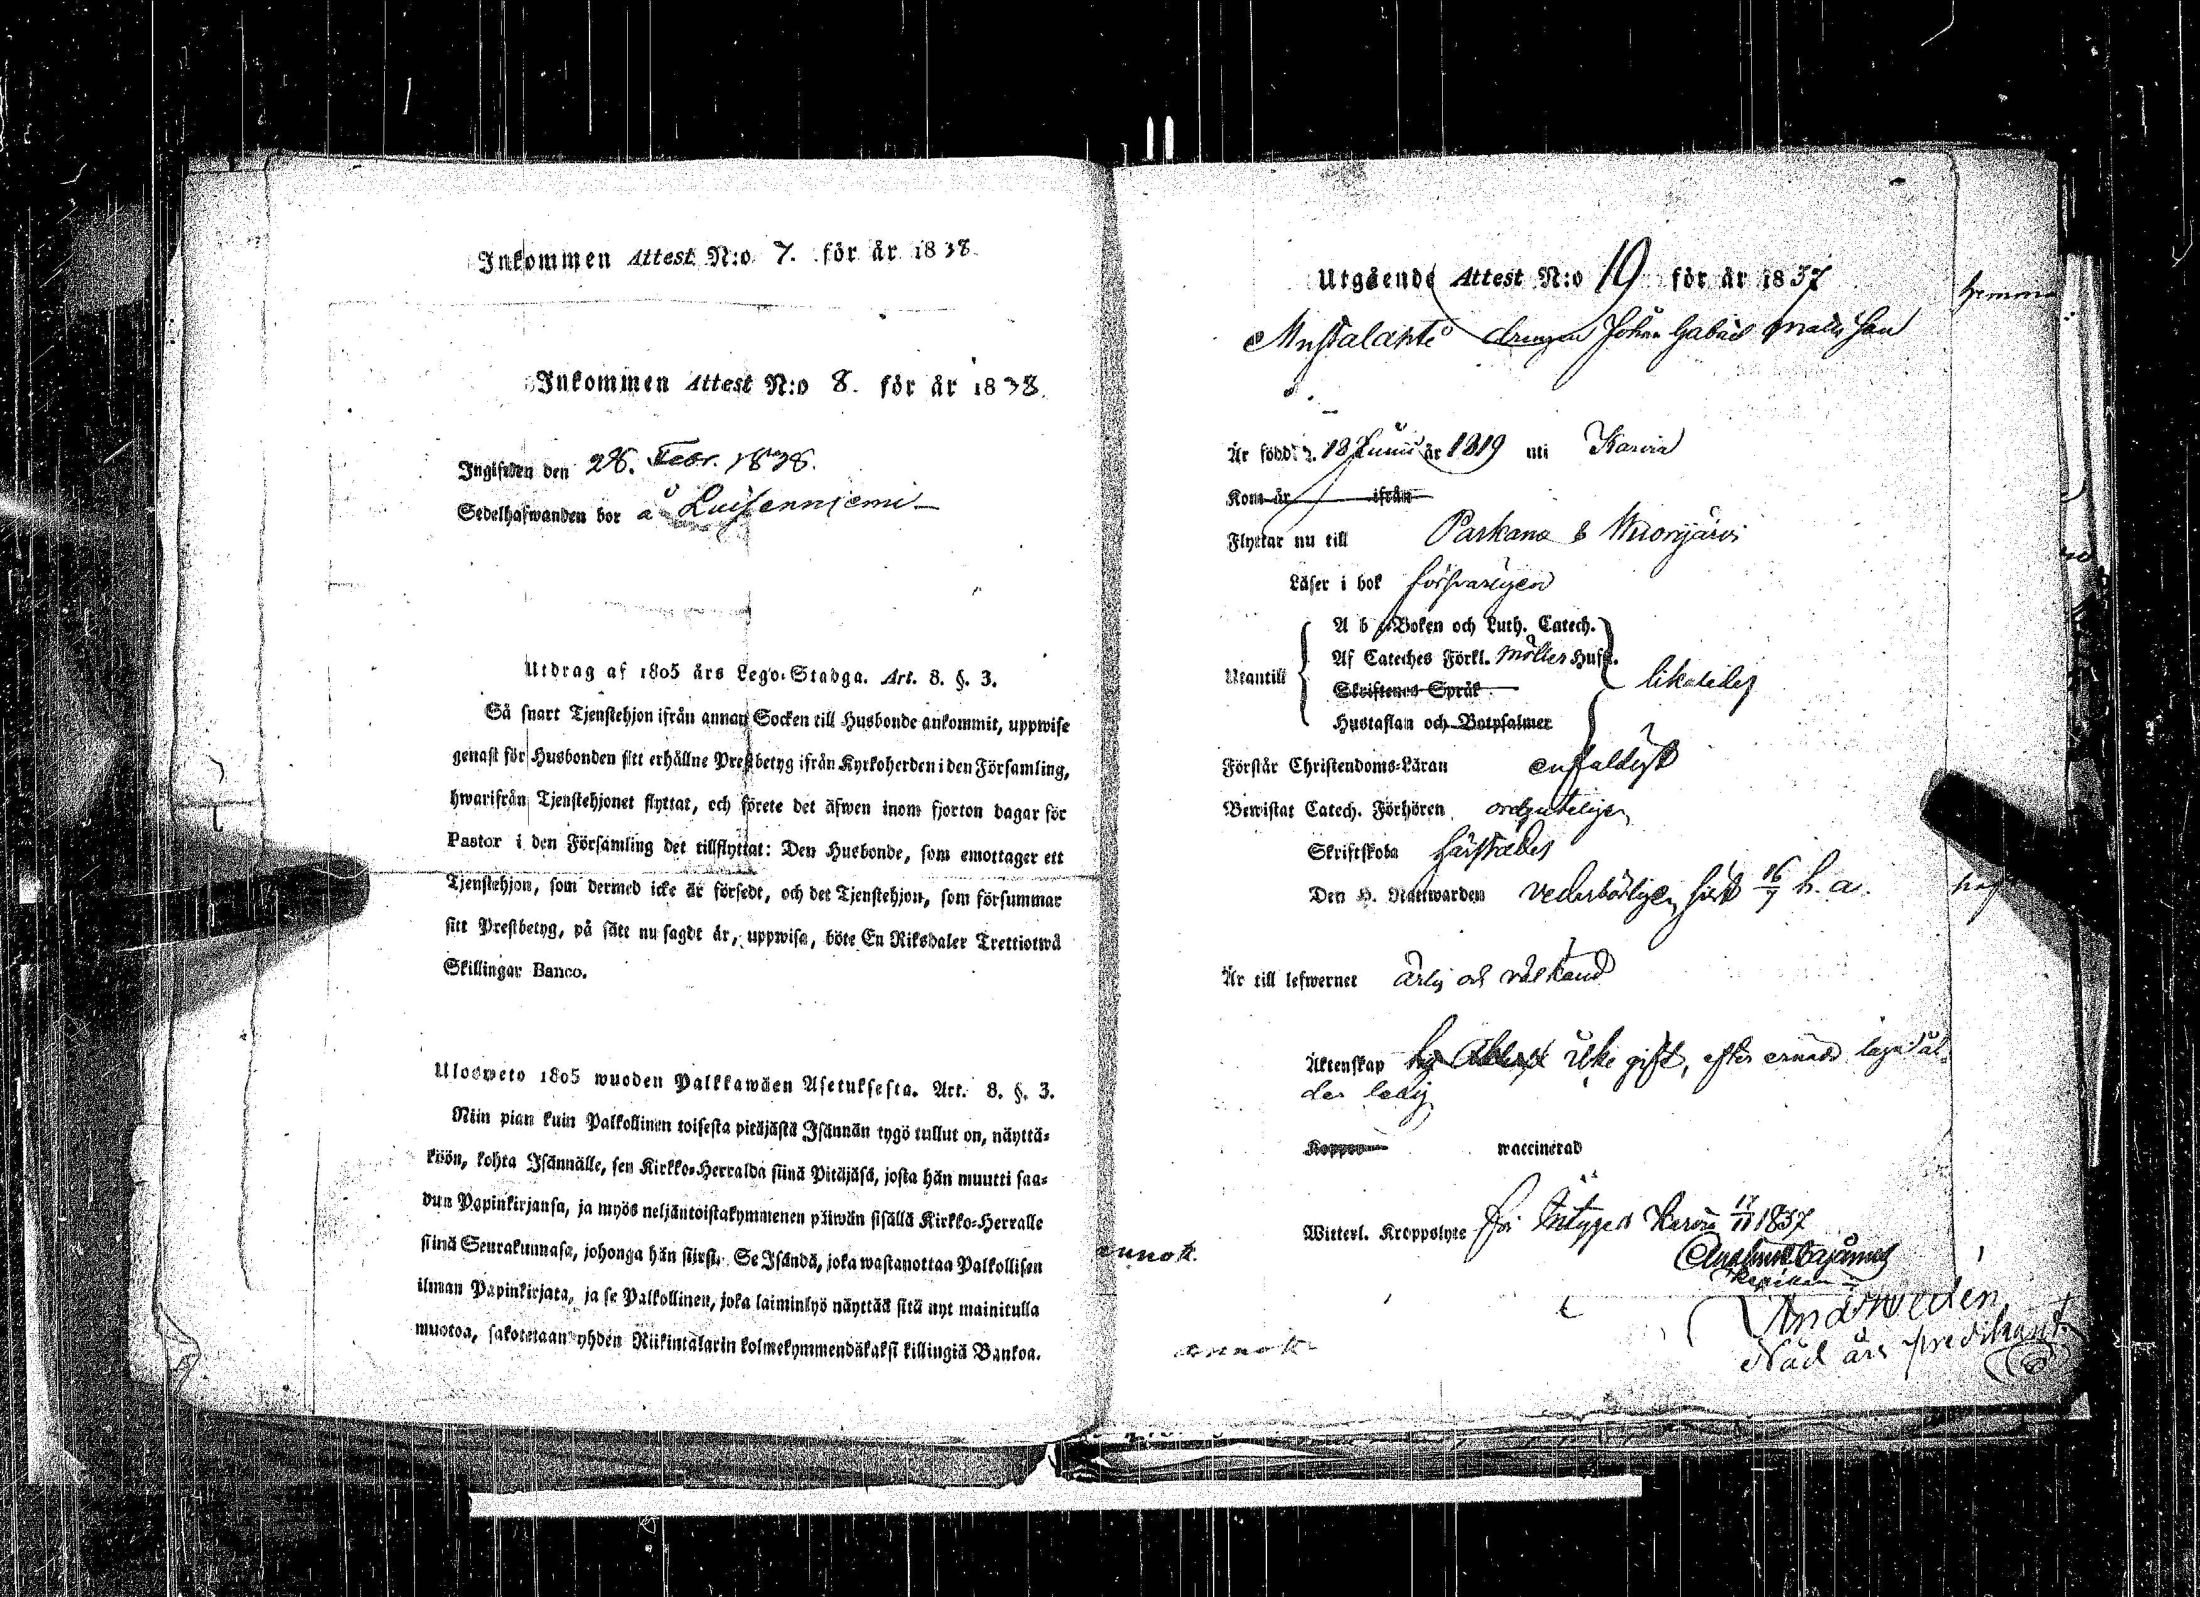 Inkommen Attest N:o 7. för år 1838.
Inkommen Attest N:o 8. för år 1838.
Ingifwen den 28. Febr. 1838.
Sedelhafwanden bor å Luisenniemi
Utdrag af 1805 års Lego-Stadga. Art. 8. §. 3.
Så snart Tjenstehjon ifrån annan Socken till Husbonde ankommit, uppwise
genast för Husbonden sitt erhållne Prestbetyg ifrån Kyrkoherden i den Församling,
hwarifrån Tjenstehjonet flyttat, och förete det äfwen inom fjorton dagar för
Pastor i den Församling det tillflyttat: Den Husbonde, som emottager ett
Tjenstehjon, som dermed icke är försedt, och det Tjenstehjon, som försummar
sitt Prestbetyg, på sätt nu sagdt är, uppwisa, böte En Riksdaler Trettiotwå
Skillingar Banco.
Ulosweto 1805 wuoden Palkkawäen Asetuksesta. Art. 8. §. 3.
Niin pian kuin Palkollinen toisesta pitäjästä Isännän tygö tullut on, näyttä-
köön, kohta Isännälle, sen Kirkko-Herralda siinä Pitäjäsä, josta hän muutti saa-
dun Papinkirjansa, ja myös neljäntoistakymmenen päiwän sisällä Kirkko-Herralle
siinä Seurakunnasa, johonga hän siirsi. Se Isändä, joka wastanottaa Palkollisen
ilman Papinkirjata, ja se Palkollinen, joka laiminlyö näyttää sitä nyt mainitulla
muotoa, sakotetaan yhden Riikintalarin kolmekymmendäkaksi killingiä Bankoa.
Utgående Attest N:o 19 för år 1837
Mustalahti drengen Johan Gabriel Matts son
Är född d. 18 Junii år 1819 uti Karvia
Kom år ifrån
Flyttar nu till Parkano & Wuorijärvi
Läser i bok försvarligen
A b c-Boken och Luth. Catech.
Af Cateches Förkl. Möllers Hufst.
Utantill
Skriftenes Språk
likaledes
Hustaflan och Botpsalmer
Förstår Christendoms-Läran enfaldigt
Bewistat Catech. Förhören ordenteligen
Skriftskola härstädes
Den H. Nattwarden vederbörligen sist 16/7 h. a.
Är till lefwernet ärlig och välkänd
Äktenskap icke gift, efter ernådd laga ål-
der ledig
Koppor waccinerad
Witterl. Kroppslyte fri Intygas Karvia 17/11 1837
annot.